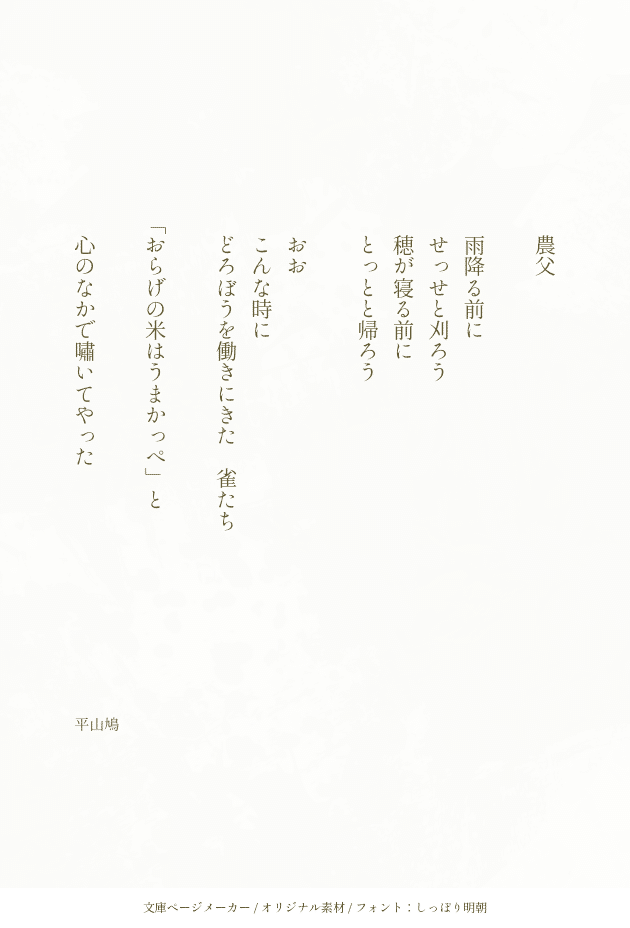 農父
雨降る前に
せっせと刈ろう
穂が寝る前に
とっとと帰ろう
おお
こんな時に
どろぼうを働きにきた　雀たち
「おらげの米はうまかっぺ」と
心のなかで嘯いてやった
平山鳩
文庫ページメーカー / オリジナル素材 / フォント：しっぽり明朝